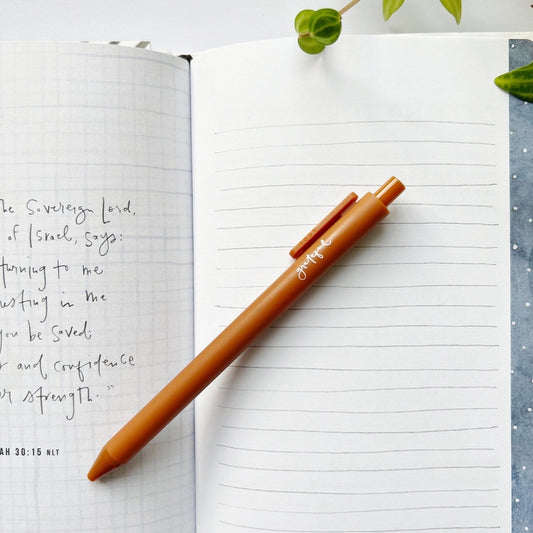 he Sovereign Lord,
of Israel, says:
turning to me
esting in me
you be saved.
and confidence
strength."
AH 30:15 NLT
grateful